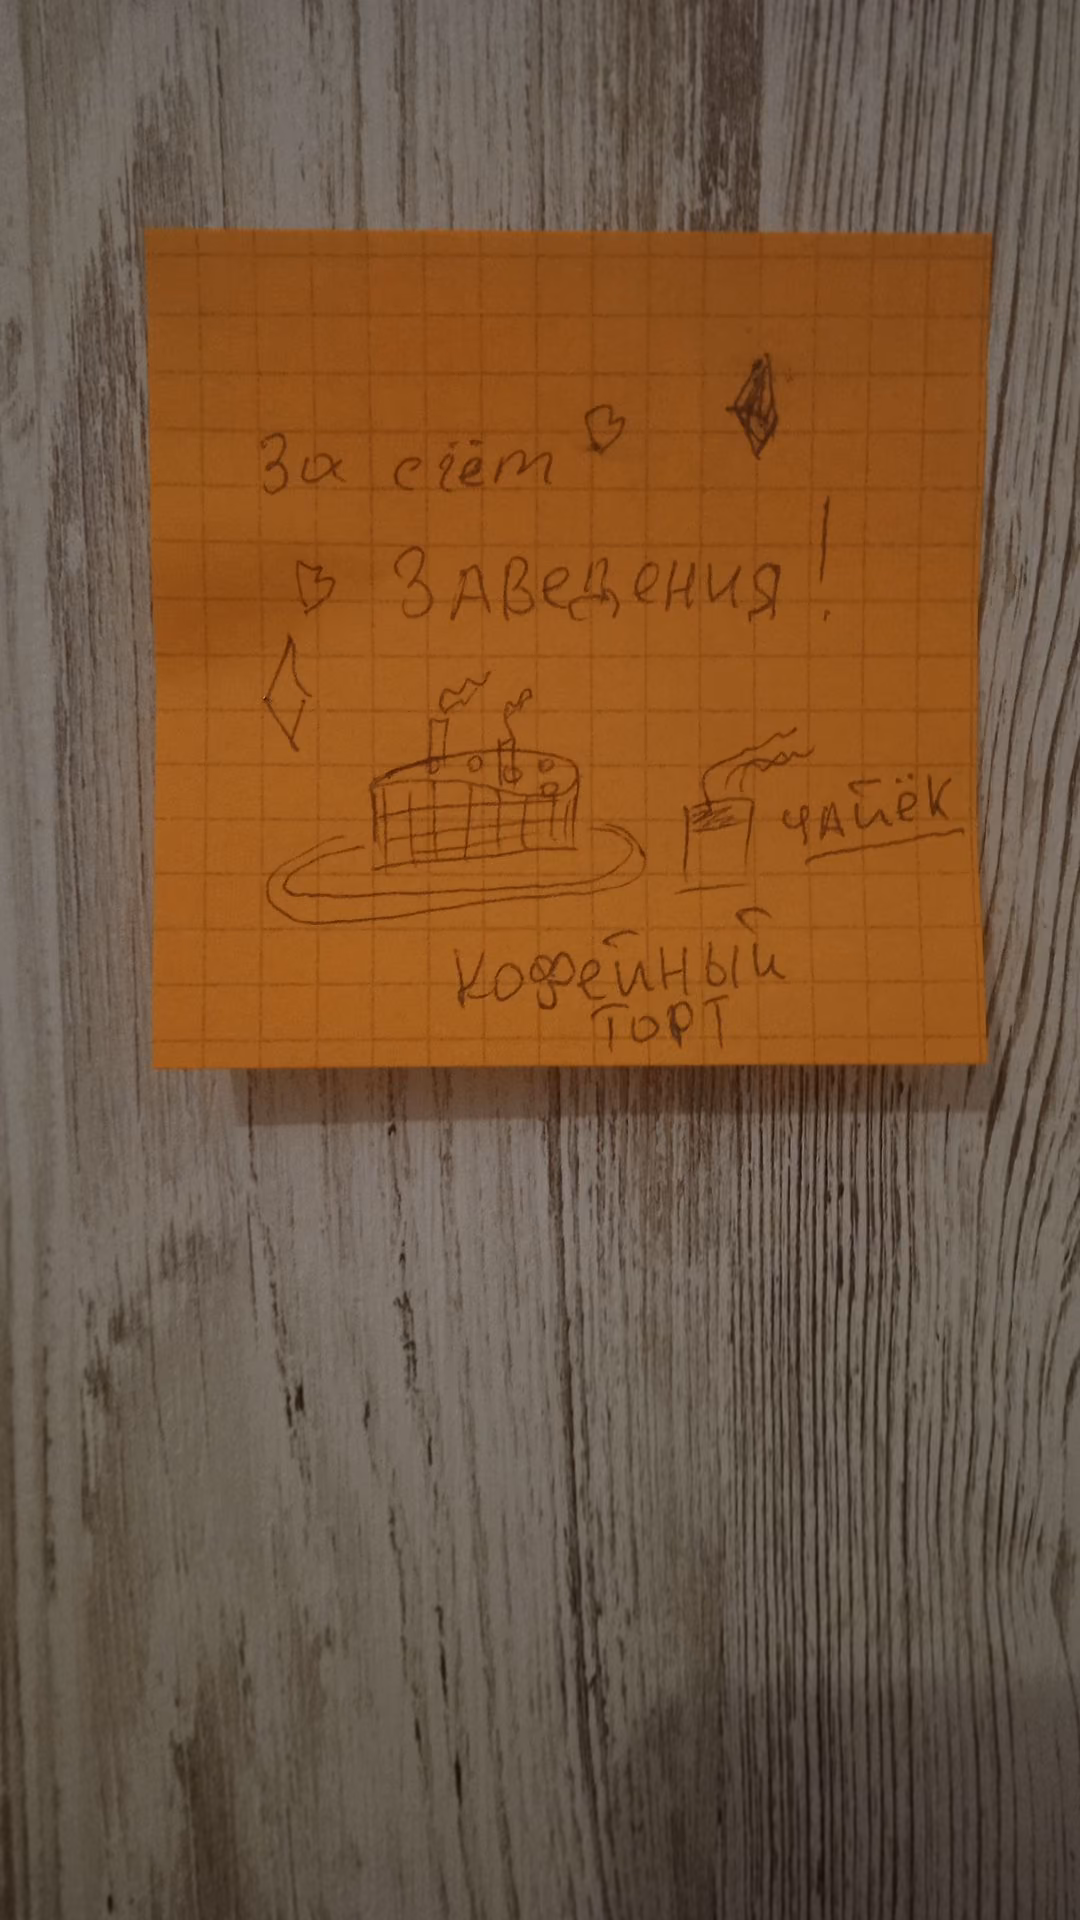 За счёт
Заведения!
чайёк
Кофейный
торт